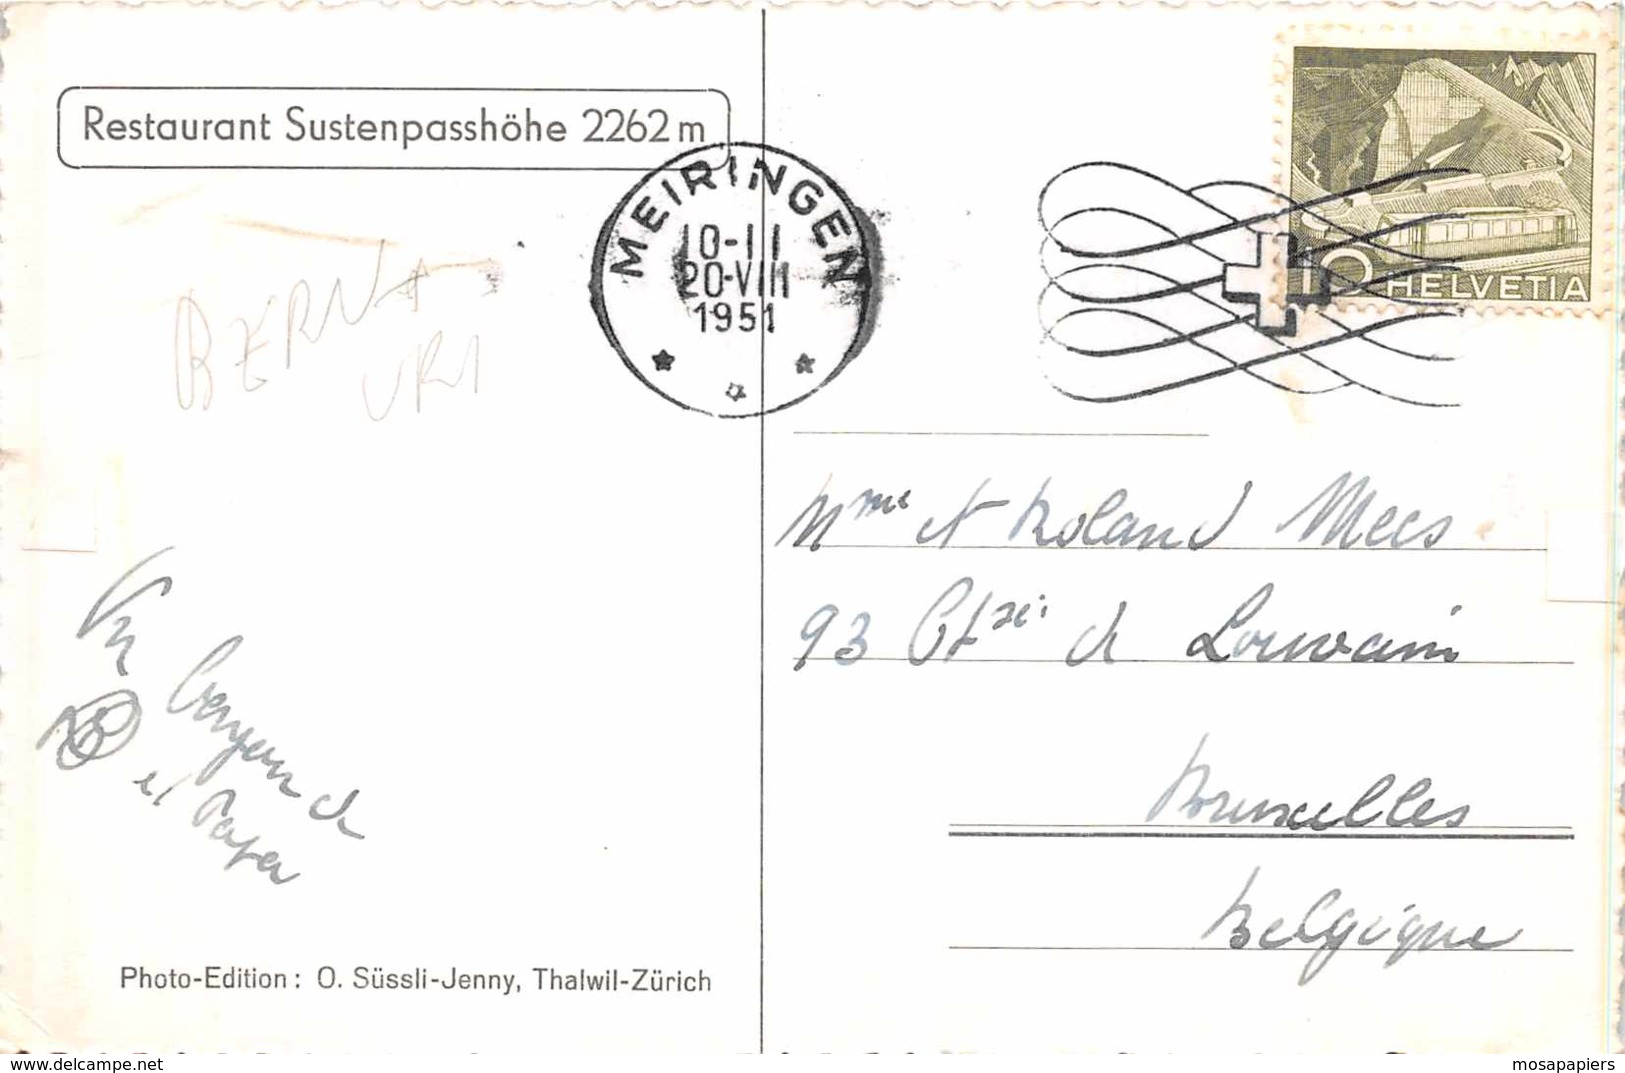 Restaurant Sustenpasshöhe 2262 m
MEIRINGEN
10-11
20-VIII
1951
10 HELVETIA
BERNA
URI
Un
et Papa
Photo-Edition: O. Süssli-Jenny, Thalwil-Zürich
Mme et Roland Mees
93 Chsée de Louvain
Bruxelles
Belgique
© delcampe.net
mosapapiers